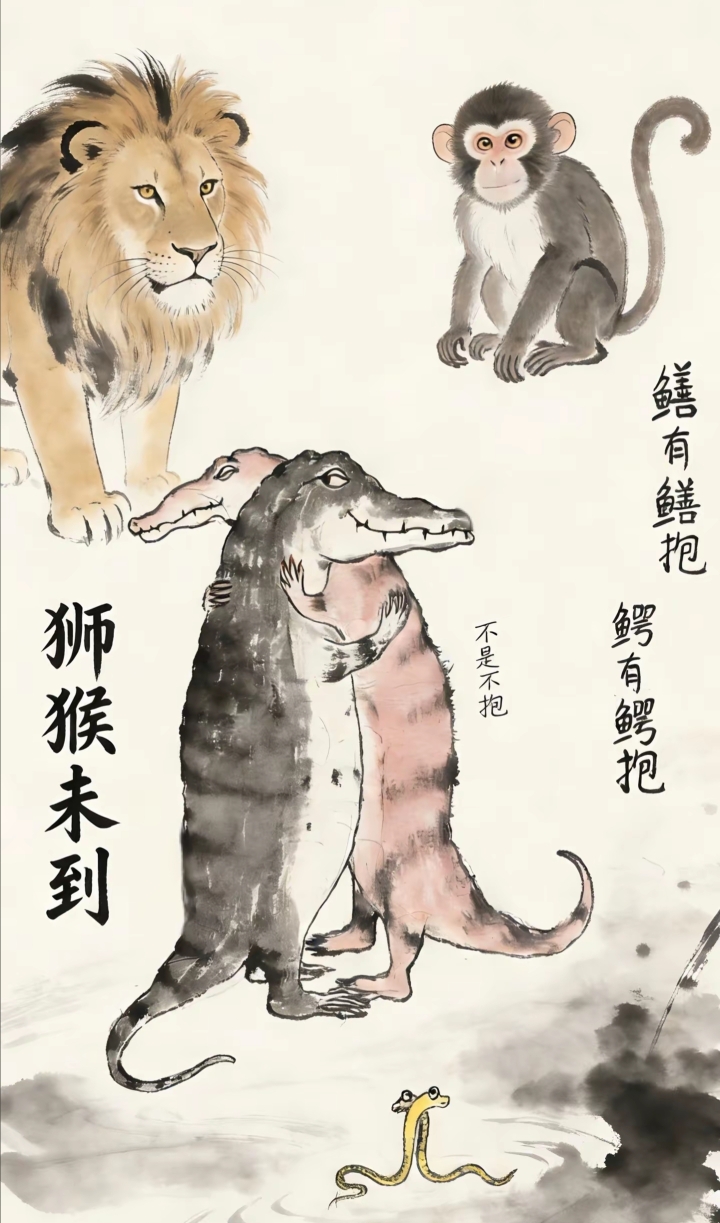 鳝有鳝抱
鳄有鳄抱
不是不抱
狮猴未到